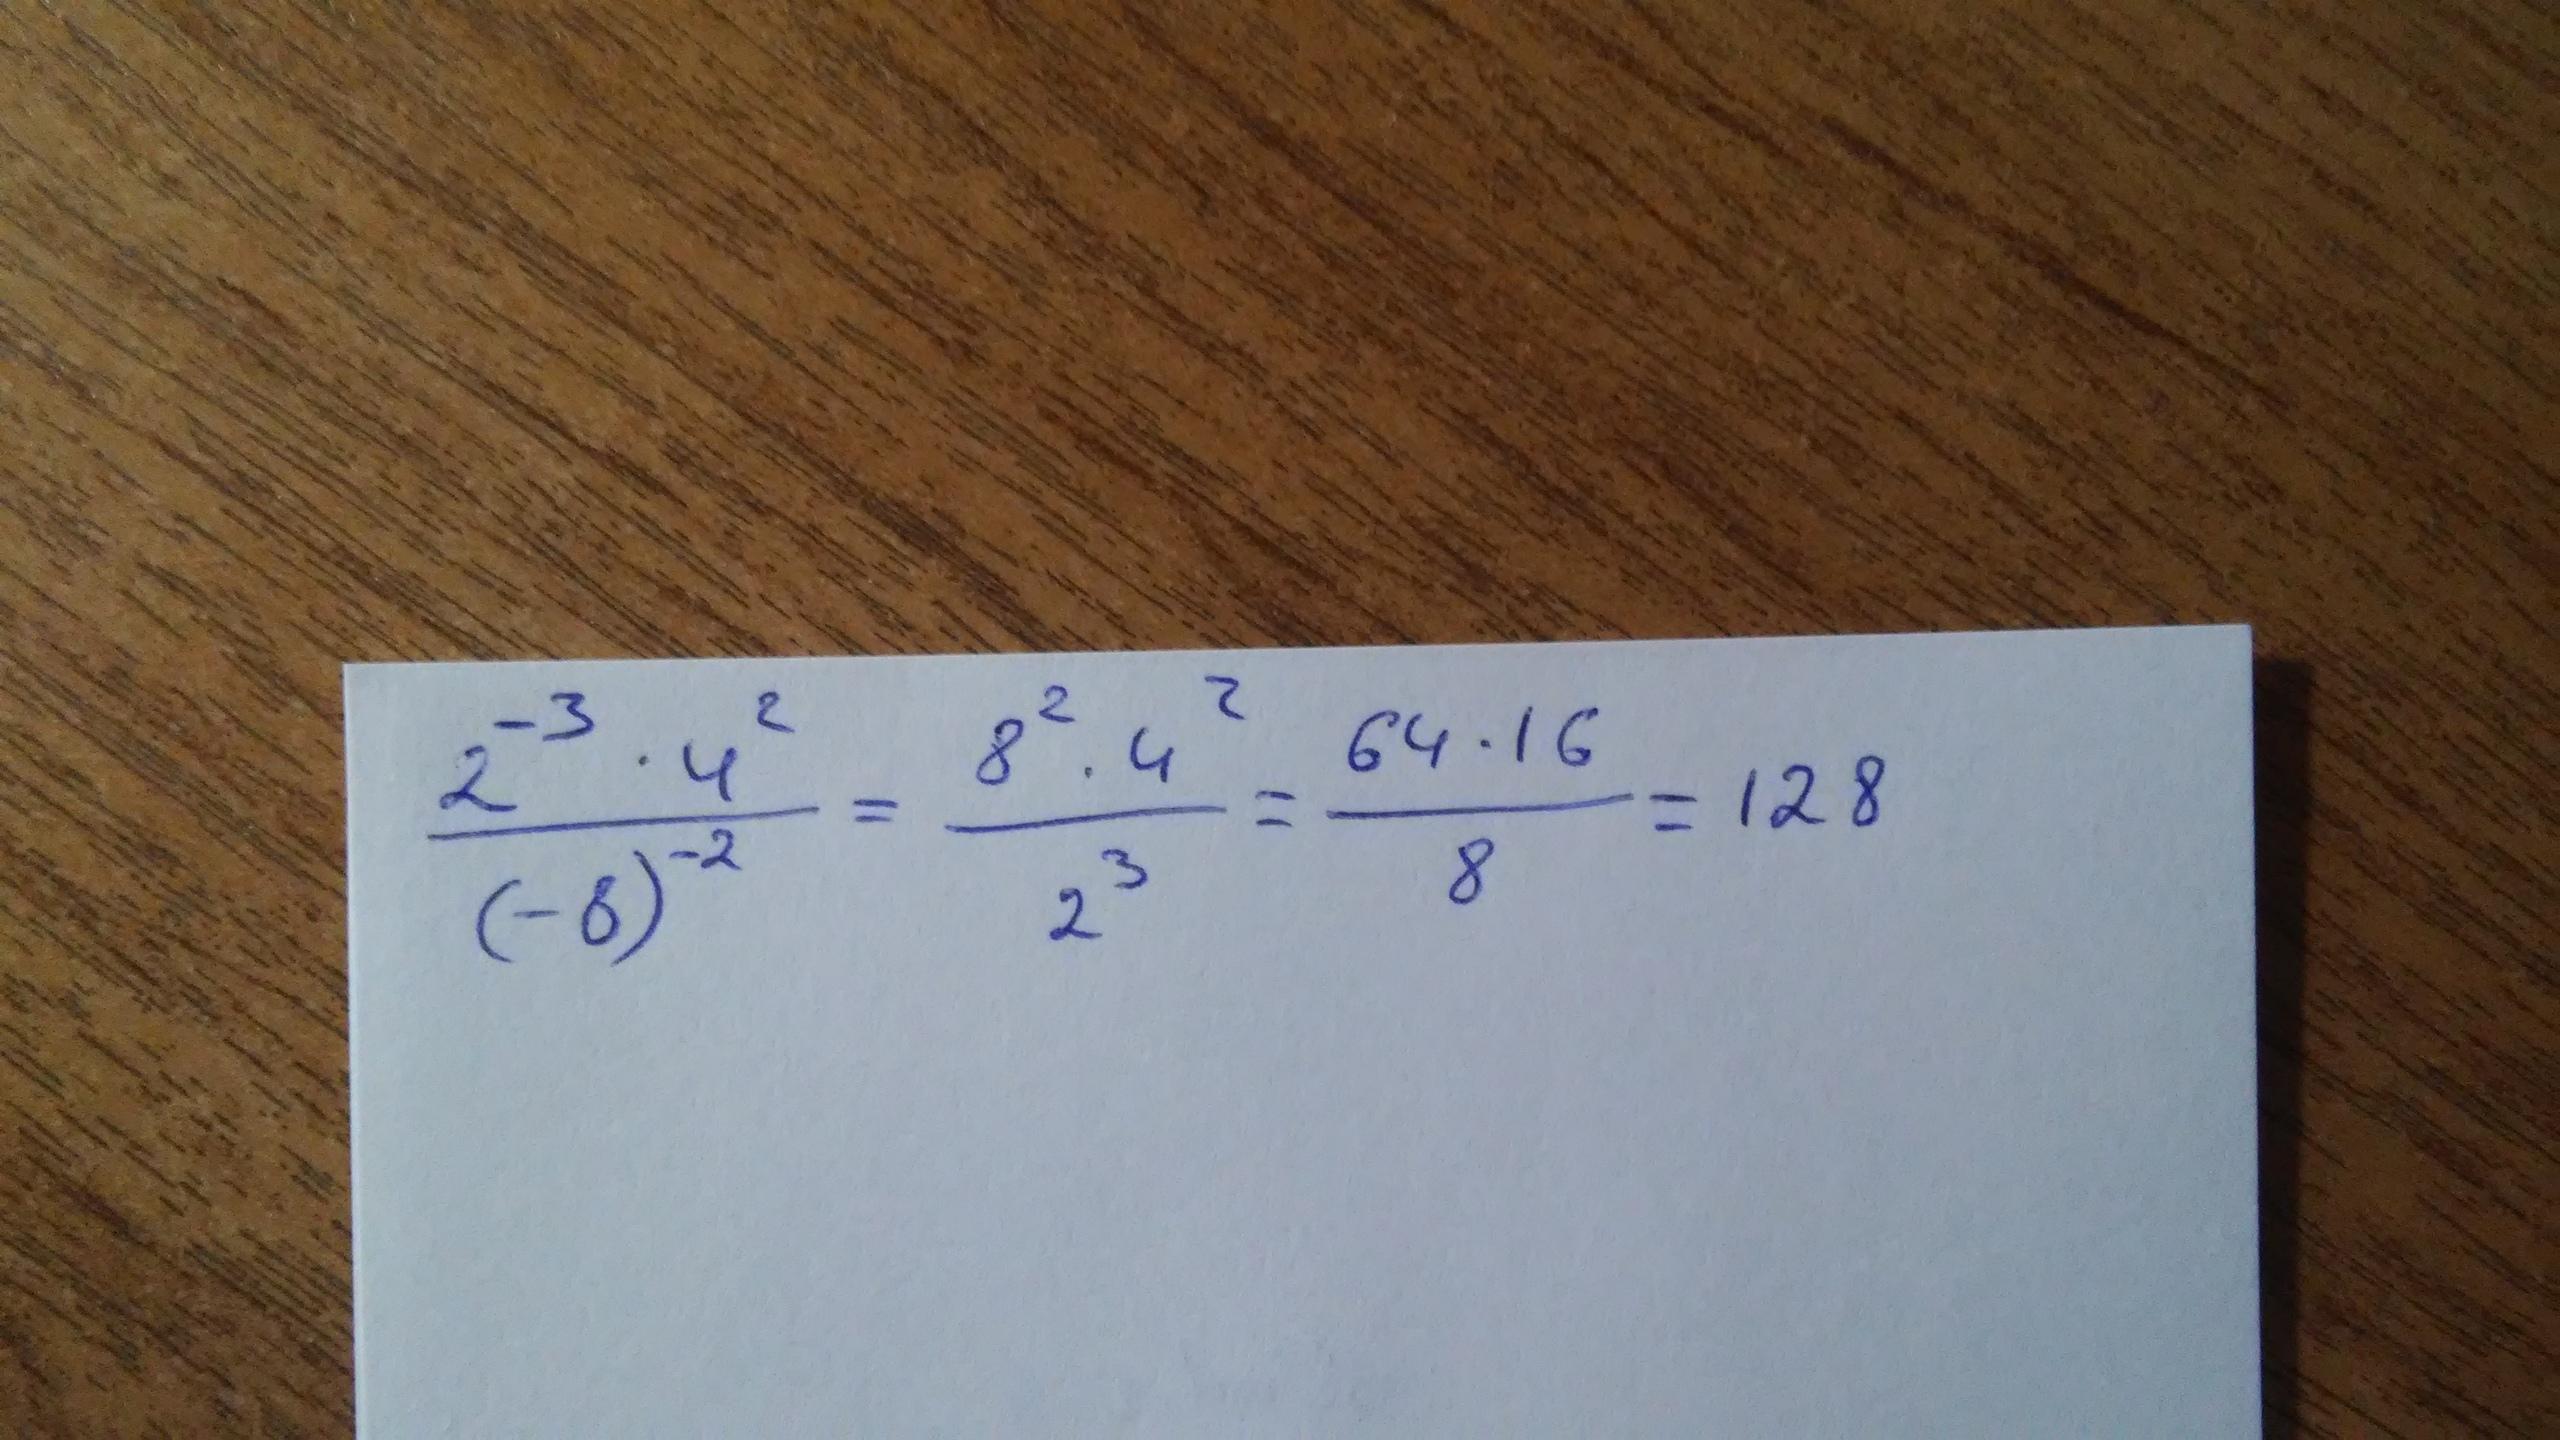 2⁻³ · 4² / (-8)⁻² = 8² · 4² / 2³ = 64 · 16 / 8 = 128